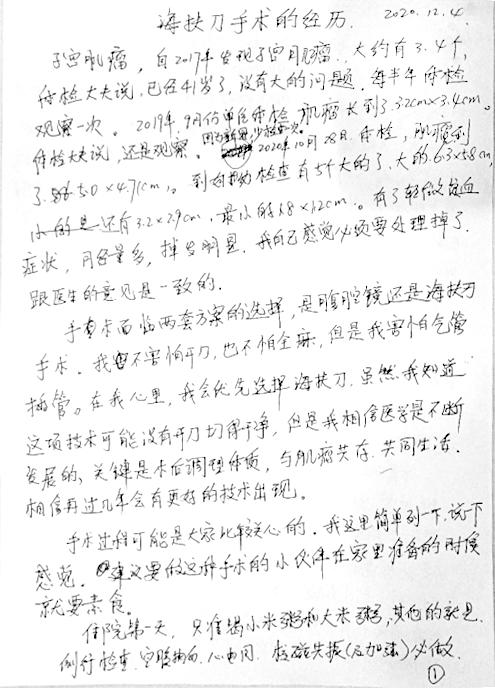 海扶刀手术的经历. 2020.12.4.
子宫肌瘤,自2017年发现子宫肌瘤、大约有3.4个,
体检大夫说,已经41岁了,没有大的问题.每半年体检
观察一次。2019年.9月份单位体检.肌瘤长到了3.32cm×3.4cm。
体检大夫说,还是观察。 2020年10月28日.体检,肌瘤到
了 5.0×4.71cm。到 检查有5个大的了.大的6.3×5.8cm,
小的是还有3.2×2.9cm.最小的1.8×1.2cm。有了轻微贫血
症状,月经量多,掉发明显.我自己感觉必须要处理掉了.
跟医生的意见是一致的.
手术面临两套方案的选择,是腹腔镜还是海扶刀
手术.我不害怕开刀,也不怕全麻,但是我害怕气管
插管。在我心里,我会优先选择海扶刀.虽然我知道
这项技术可能没有开刀切得干净,但是我相信医学是不断
发展的、关键是术后调理体质,与肌瘤共存.共同生活.
相信再过几年会有更好的技术出现。
手术过程可能是大家比较关心的.我这里简单列一下,说下
感觉. 建议要做这种手术的小伙伴在家里准备的时候
就要素食。
住院第一天,只准喝小米粥和大米粥,其他的就是.
例行检查. 心电图.核磁共振(及加强)必做.
①